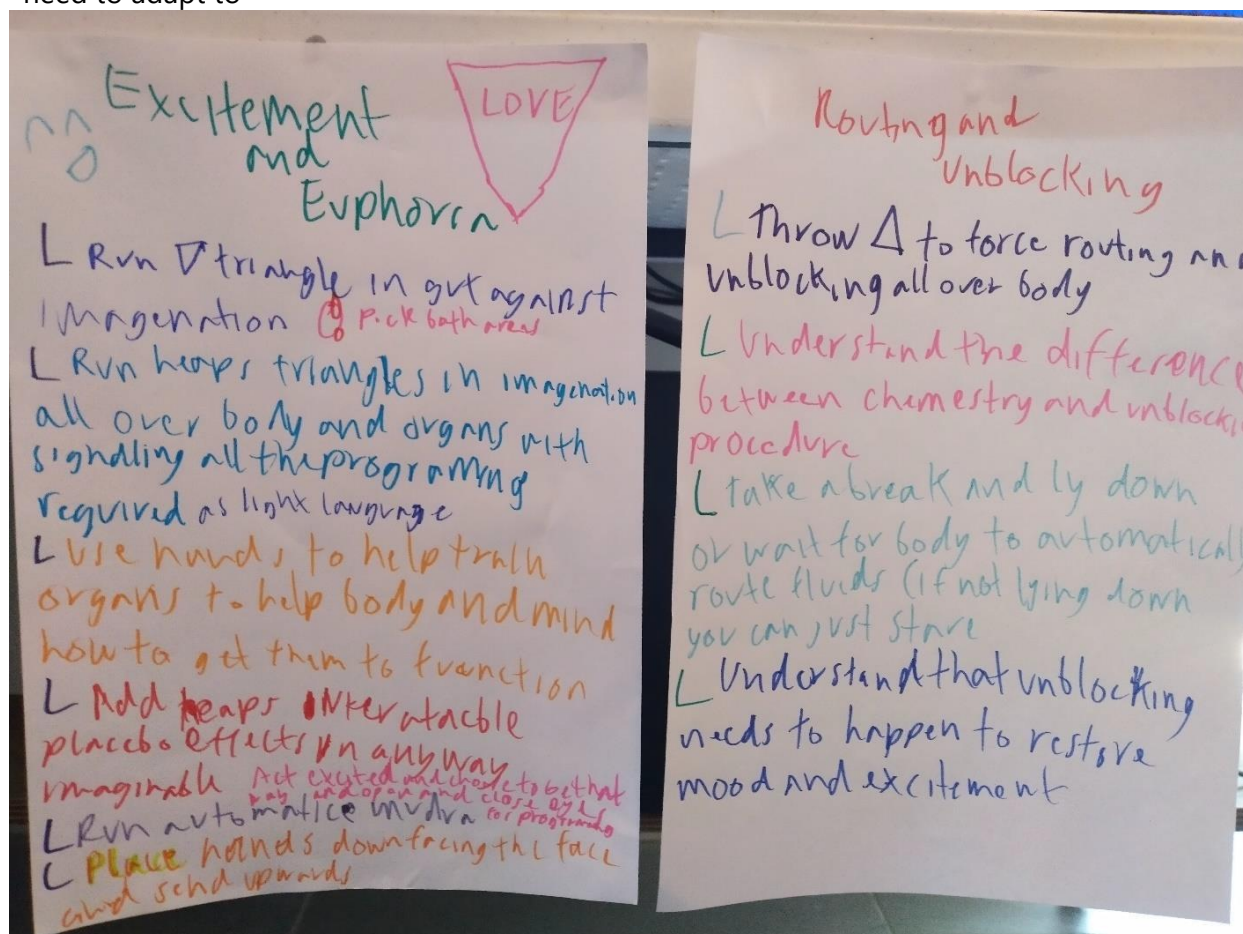 need to adapt to
Excitement
and
Euphoria
LOVE
Run ∇ triangle in gut against
imagenation Pick both areas
Run heaps triangles in imagenation
all over body and organs with
signalling all the programing
required as light language
Use hands to help train
organs to help body and mind
how to get them to function
Add heaps
placebo effects in anyway
imaginable Act excyted and chose to be that
way and open and close eyes
Run automatice mudra for programing
Place hands down facing the face
and send upwards
Routing and
Unblocking
Throw Δ to force routing an
unblocking all over body
Understand the difference
between chemestry and unblocki
procedure
take a break and ly down
or wait for body to automatical
route fluids (if not lying down
you can just stare
Understand that unblocking
needs to happen to restore
mood and excitement